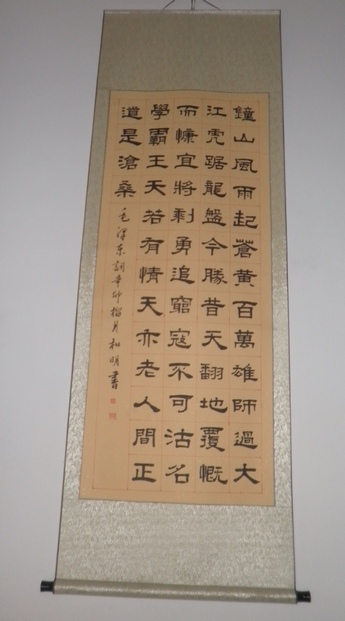 鐘山風雨起蒼黃百萬雄師過大
江虎踞龍盤今勝昔天翻地覆慨
而慷宜將剩勇追窮寇不可沽名
學霸王天若有情天亦老人間正
道是滄桑 毛澤东詞辛卯榴月和明書